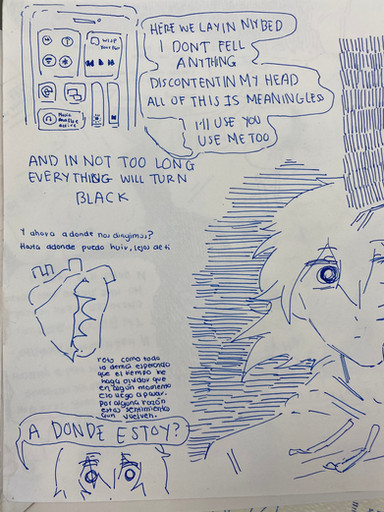 HERE WE LAY IN MY BED
I DONT FELL
ANYTHING
DISCONTENT IN MY HEAD
ALL OF THIS IS MEANINGLESS
I'll USE YOU
USE ME TOO
AND IN NOT TOO LONG
EVERYTHING WILL TURN
BLACK
Y ahora a donde nos dirigimos?
Hasta adonde puedo huir, lejos de ti
roto como todo
lo demás esperando
que el tiempo me
haga olvidar que
en algun momento
llego a pasar.
por alguna razón
estos sentimientos
aun vuelven.
A DONDE ESTOY?